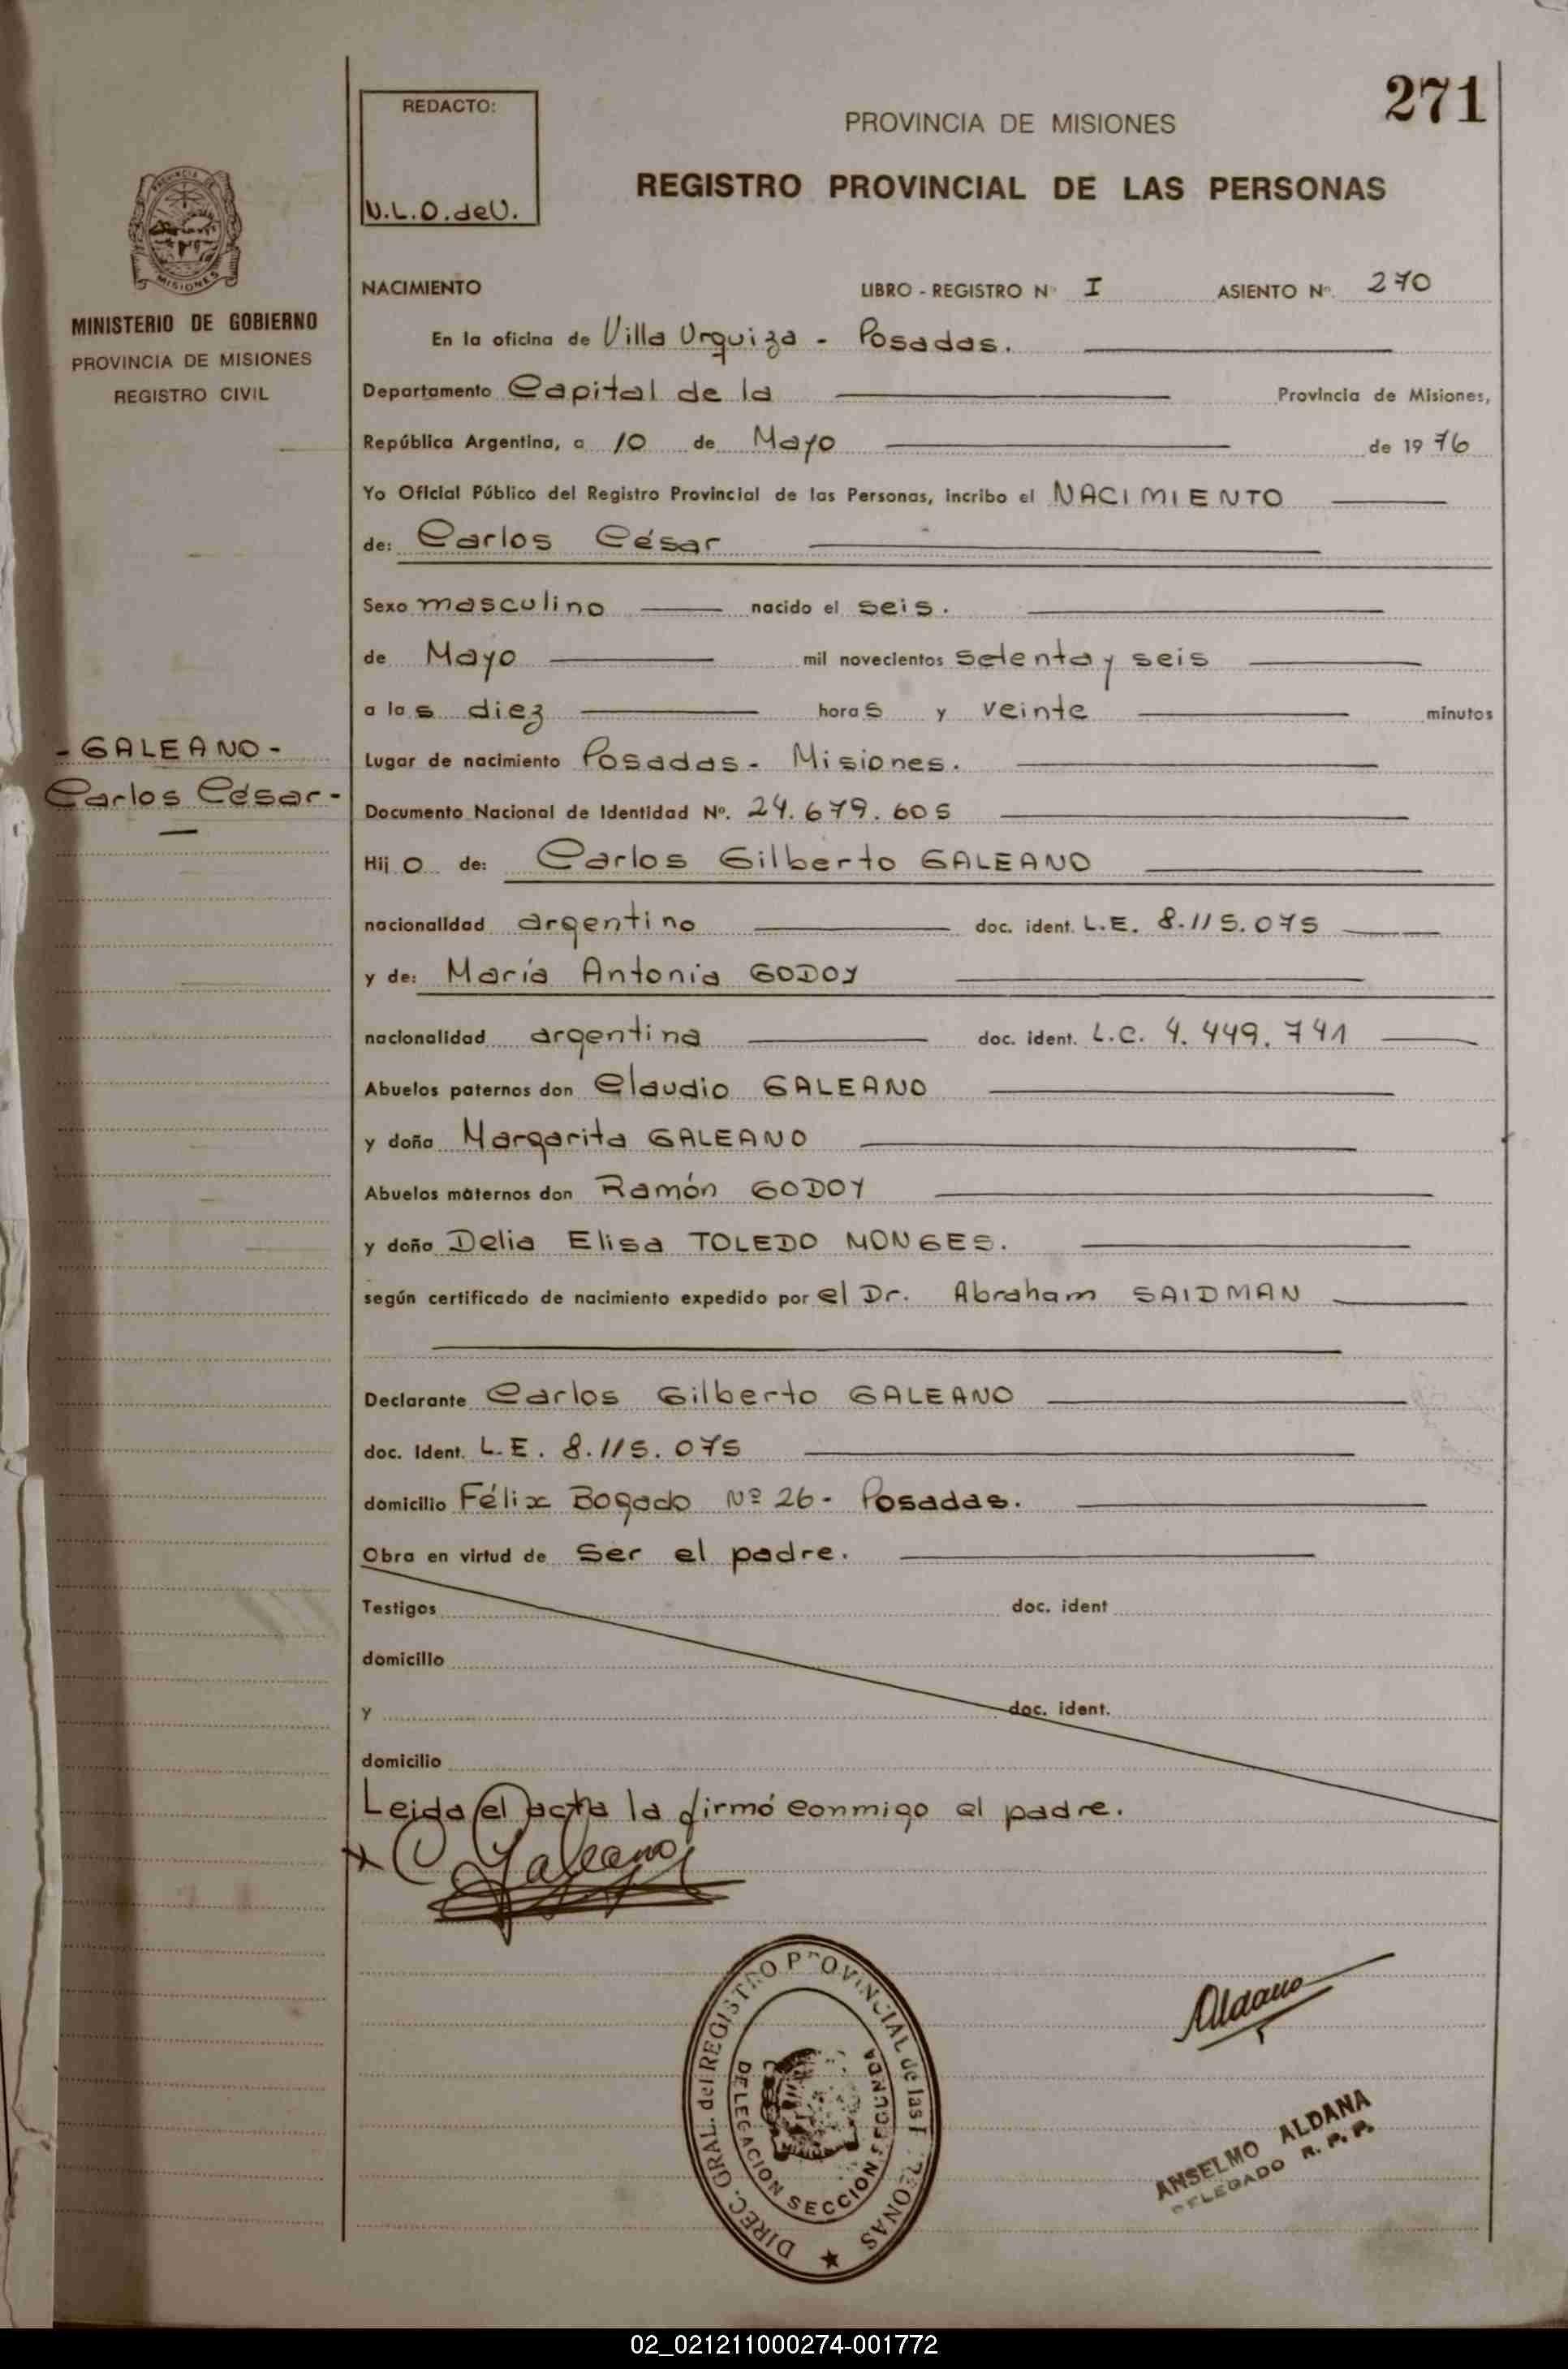 271
REDACTO:
V.L.O. de V.
PROVINCIA DE MISIONES
REGISTRO PROVINCIAL DE LAS PERSONAS
PROVINCIA DE MISIONES
MINISTERIO DE GOBIERNO
PROVINCIA DE MISIONES
REGISTRO CIVIL
NACIMIENTO LIBRO - REGISTRO Nº I ASIENTO Nº. 270
En la oficina de Villa Urquiza - Posadas.
Departamento Capital de la Provincia de Misiones,
República Argentina, a 10 de Mayo de 1976
Yo Oficial Público del Registro Provincial de las Personas, incribo el NACIMIENTO
de: Carlos César
Sexo masculino nacido el seis.
de Mayo mil novecientos setenta y seis
a las diez horas y veinte minutos
- GALEANO -
Carlos César -
Lugar de nacimiento Posadas - Misiones.
Documento Nacional de Identidad Nº. 24.679.605
Hijo de: Carlos Gilberto GALEANO
nacionalidad argentino doc. ident. L.E. 8.115.075
y de: María Antonia GODOY
nacionalidad argentina doc. ident. L.C. 4.449.741
Abuelos paternos don Claudio GALEANO
y doña Margarita GALEANO
Abuelos maternos don Ramón GODOY
y doña Delia Elisa TOLEDO MONGES.
según certificado de nacimiento expedido por el Dr. Abraham SAIDMAN
Declarante Carlos Gilberto GALEANO
doc. Ident. L.E. 8.115.075
domicilio Félix Bogado Nº 26 - Posadas.
Obra en virtud de Ser el padre.
Testigos doc. ident
domicilio
y doc. ident.
domicilio
Leida el acta la firmó conmigo el padre.
C Galeano
DIREC. GRAL. del REGISTRO PROVINCIAL de las PERSONAS
DELEGACION SECCION SEGUNDA
Aldana
ANSELMO ALDANA
DELEGADO R. P. P.
02_021211000274-001772